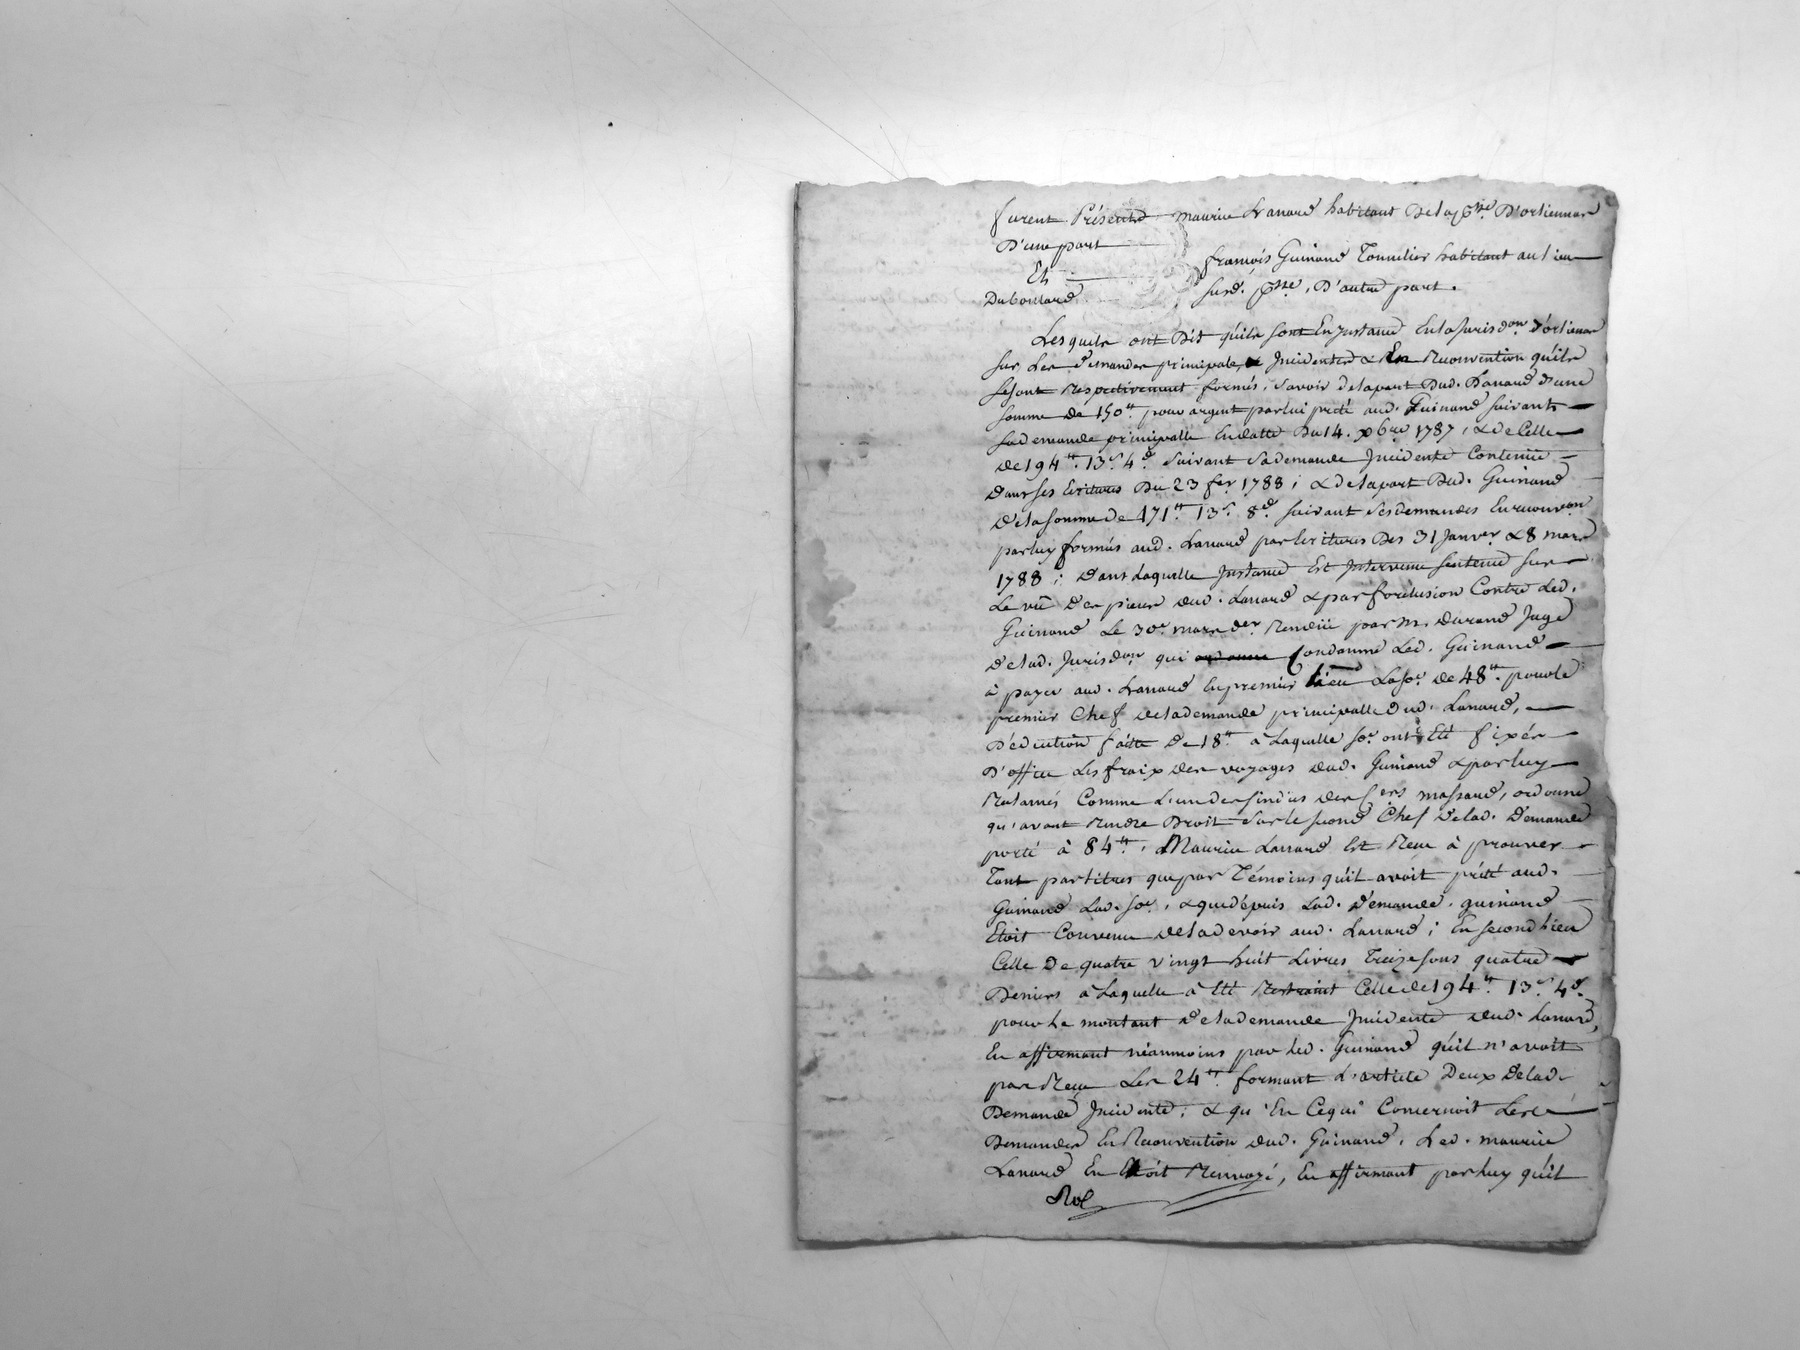 furent Présents maurice Lanaud habitant de la psse D'orliennas
D'une part
Et françois Guinand Tonnelier habitant au lieu
Du boulard susd. psse, D'autre part.
Lesquels ont Dit qu'ils sont En Instance En la Jurisdon d'orlienas
sur Les demandes principales Incidentes & En Reconvention qu'ils
se sont Respectivement formés, savoir de la part Dud. Lanaud d'une
somme de 150tt pour argent par lui preté aud. Guinand suivant
sa demande principalle En datte Du 14. xbre 1787, & de Celle
de 194tt 13s 4d suivant sa demande Incidente Contenue
dans ses Ecritures Du 23 fer 1788; & de la part Dud. Guinand
De la somme de 471tt 13s 8d suivant ses demandes En reconvon
par luy formés aud. Lanaud par Ecritures Des 31 Janver & 8 mars
1788; dans Laquelle Instance Est Intervenue sentence sur
Le vû des pieces dud. Lanaud & par forclusion Contre Led.
Guinand Le 30e mars der Rendüe par m. durand Juge
de lad. Jurisdon qui Condamne Led. Guinand
à payer aud. Lanaud En premier lieu La se de 48tt pour le
premier Chef de la demande principalle dud. Lanaud,
Déduction faitte de 18tt à Laquelle se ont Eté fixés
D'office Les fraix des voyages dud. Guinand & par luy
Reclamés Comme L'un des sindics des srs massard, ordonne
qu'avant Rendre Droit sur le second Chef de lad. Demande
porté à 84tt, Maurice Lanaud Est Reçu à prouver
Tant par titres que par Témoins qu'il avoit prêté aud.
Guinand Lad. se, & que depuis Lad. Demande guinand
Etoit Convenu de la devoir aud. Lanaud; En second Lieu
Celle de quatre vingt huit Livres Treize sous quatre
Deniers à Laquelle à Eté Restraint Celle de 194tt 13s 4d
pour Le montant de la demande Incidente dud. Lanaud,
En affirmant néanmoins par Led. Guinand qu'il n'avoit
pas Reçu Les 24tt formant L'article Deux de lad.
Demande Incidente; & qu'En Ce qui Concernoit Les
Demandes En Reconvention dud. Guinand, Led. maurice
Lanaud En Etoit Renvoyé, En affirmant par luy qu'il